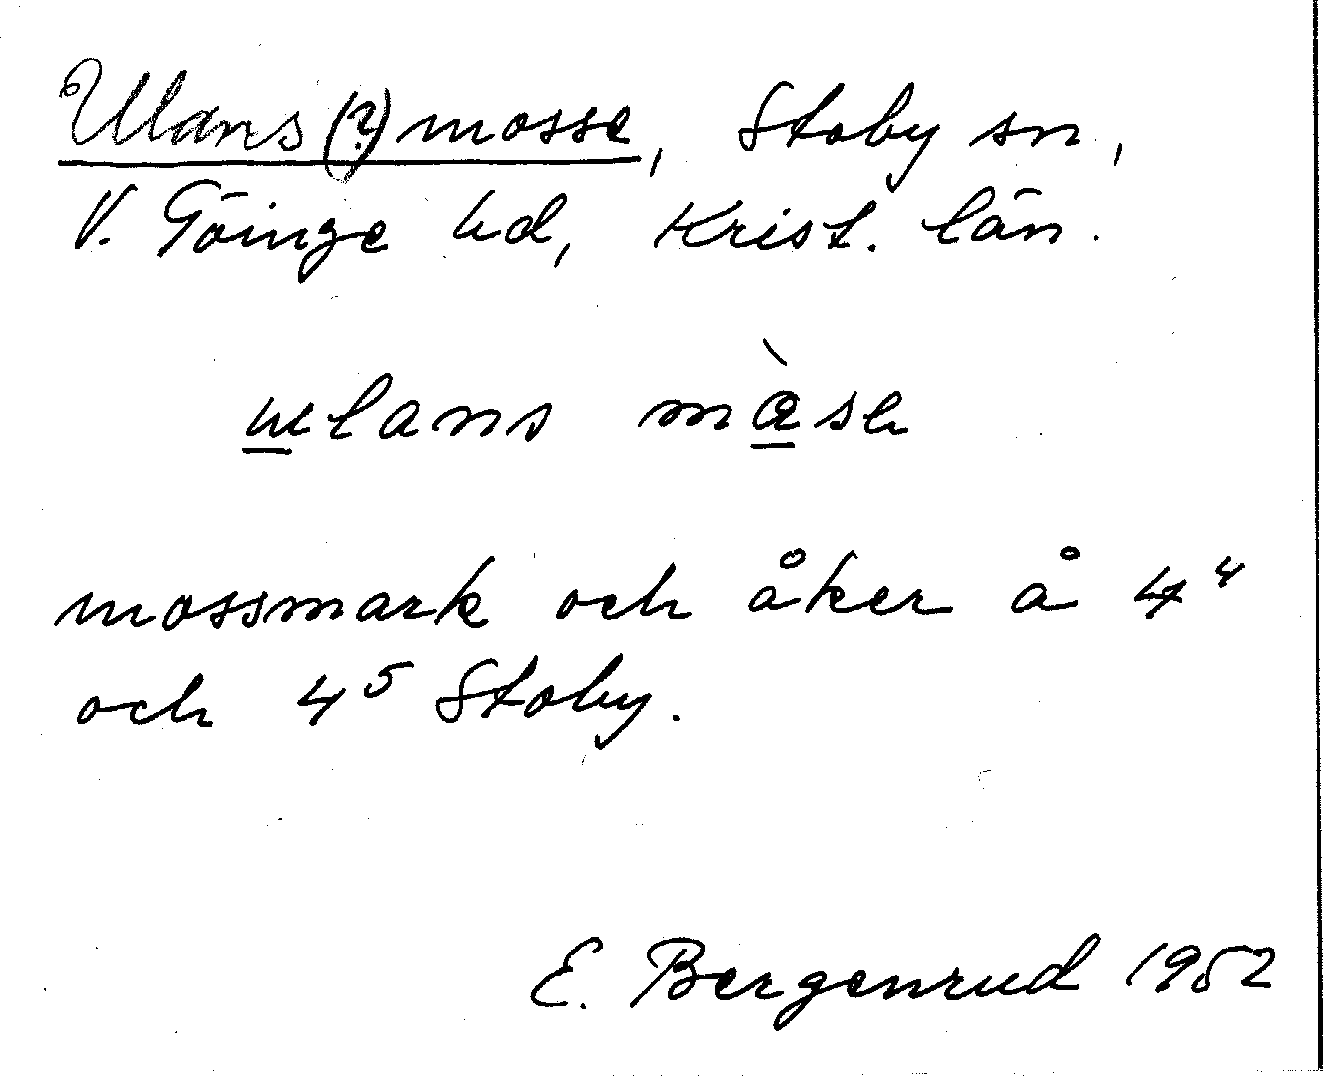 Ulans (?) mosse, Stoby sn,
V. Göinge hd, Krist. län.
ulans màse
mossmark och åker å 4⁴
och 4⁵ Stoby.
E. Bergenrud 1952